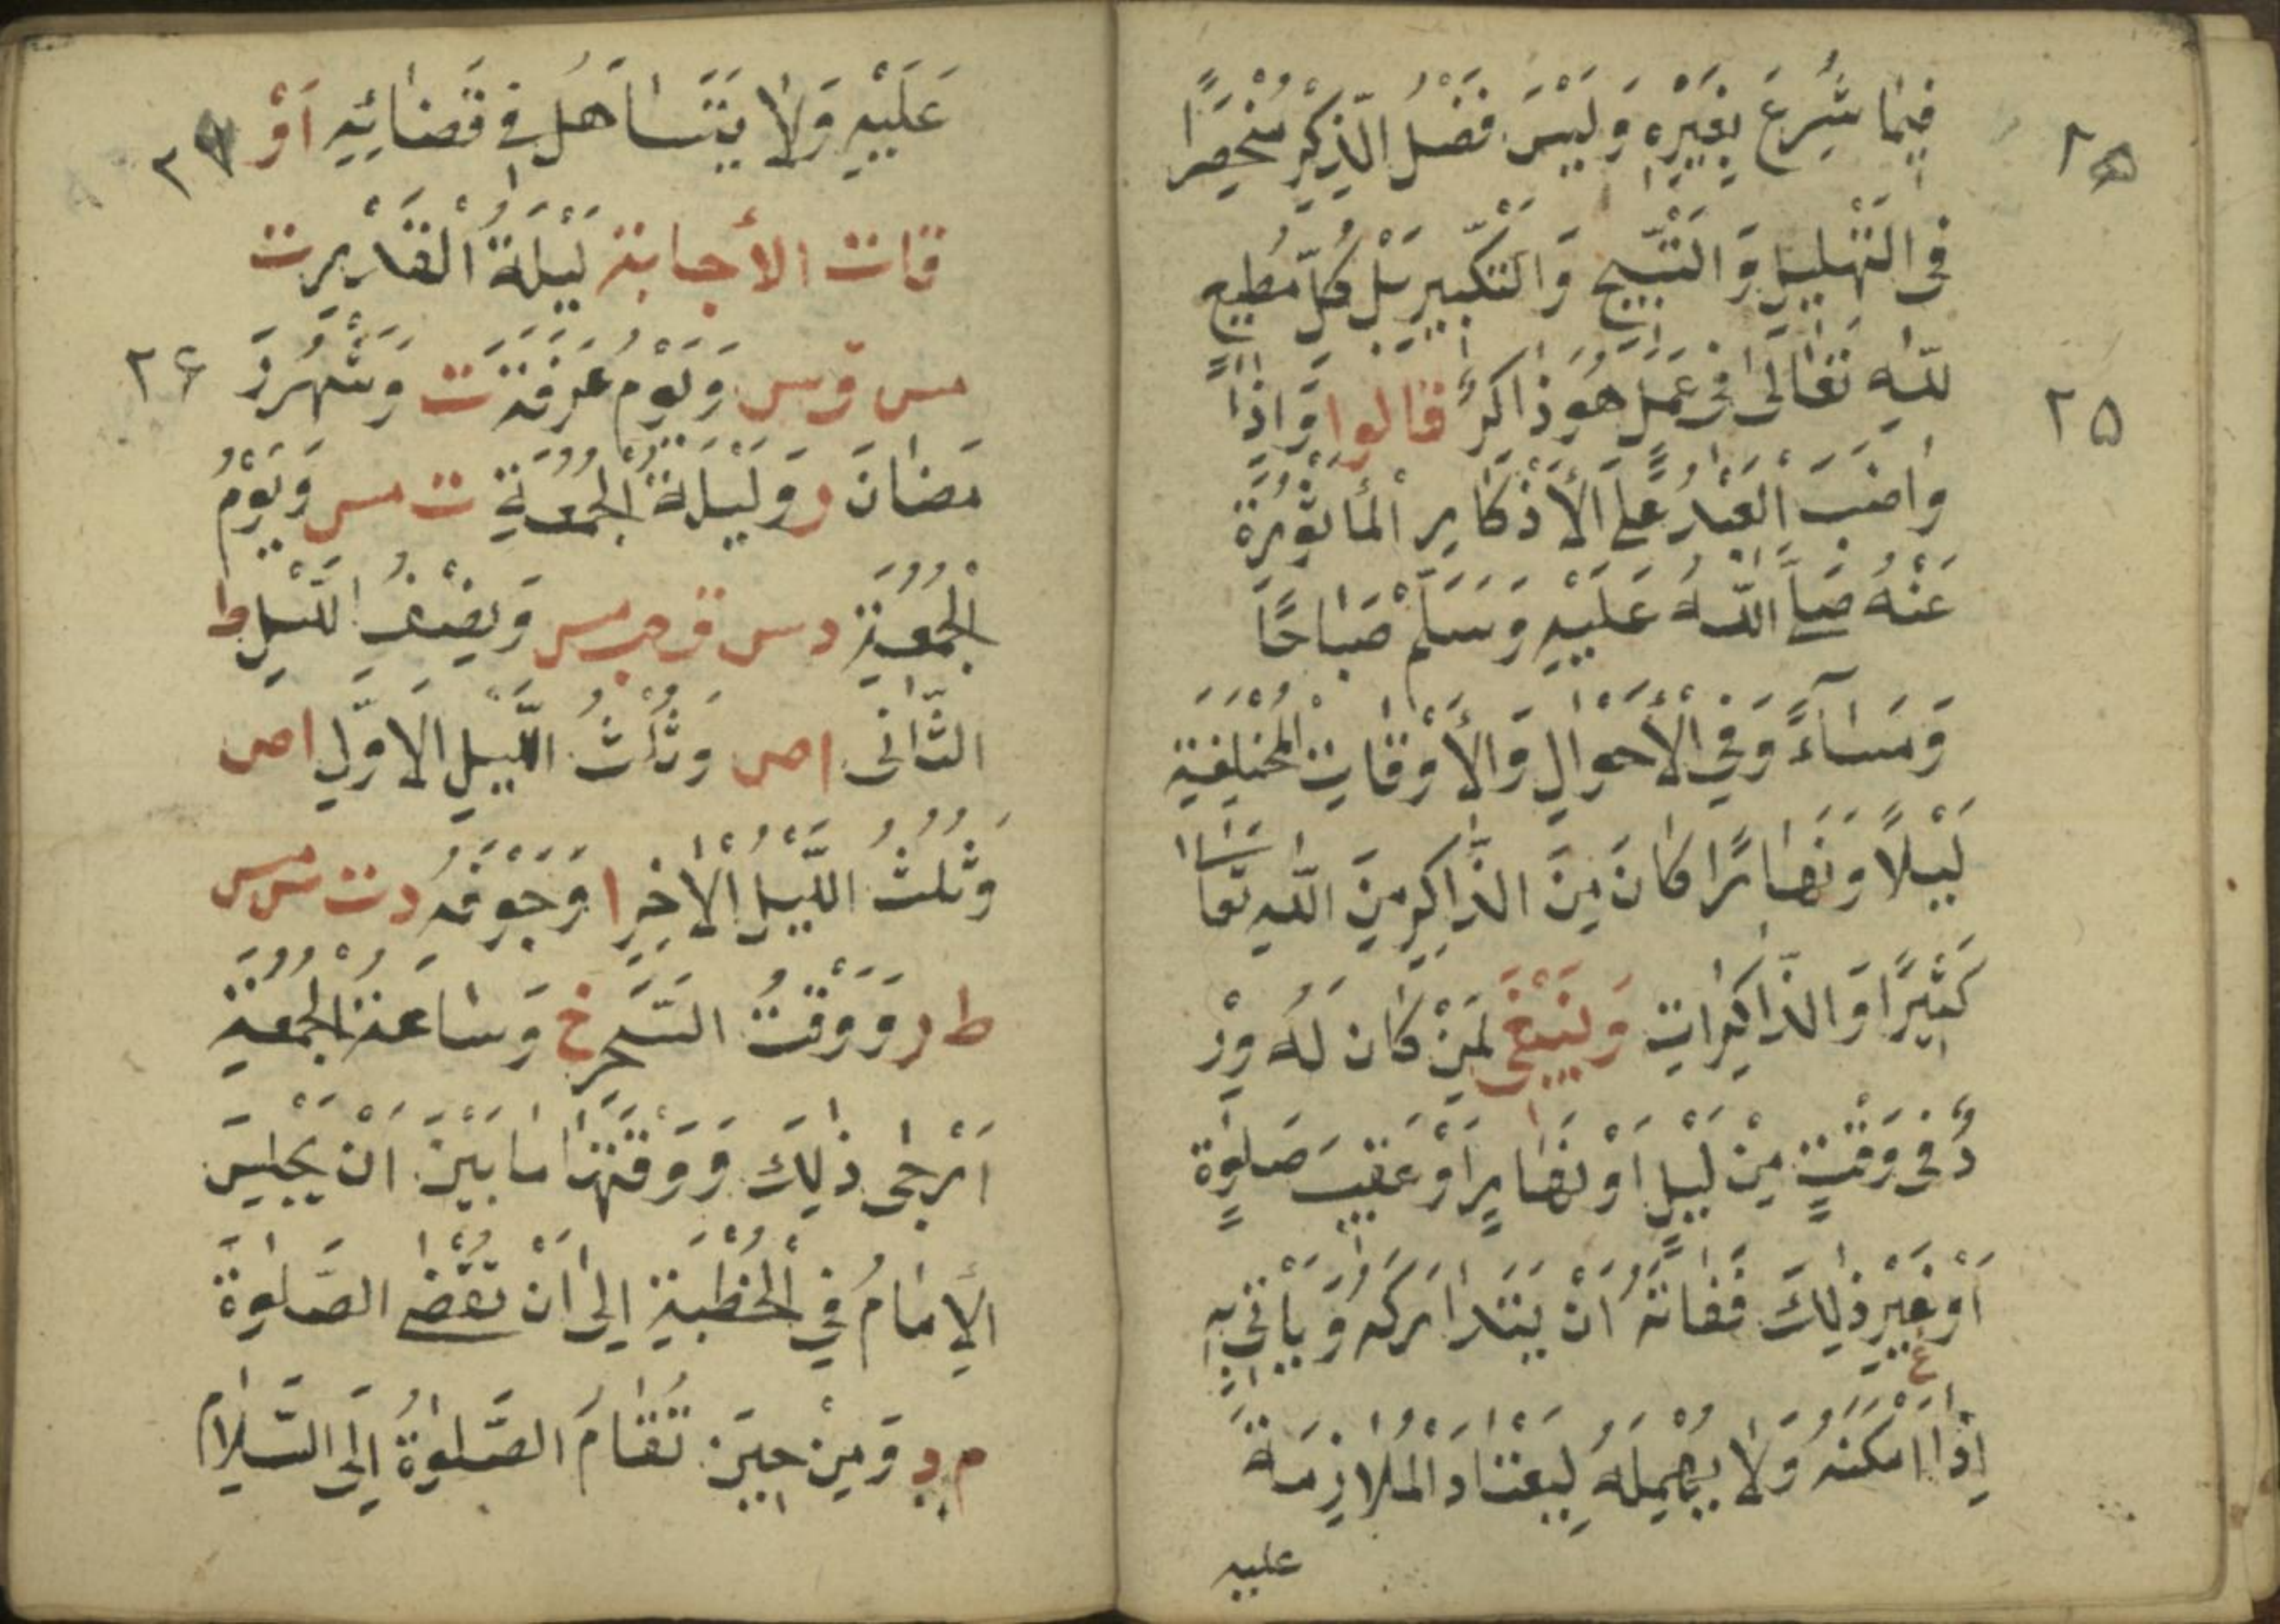 فِيمَا شُرِعَ بِغَيْرِهِ وَلَيْسَ فَضْلُ الذِّكْرِ مُنْحَصِرًا
فِى التَّهْلِيلِ وَالتَّسْبِيحِ وَالتَّكْبِيرِ بَلْ كُلُّ مُطِيعٍ
لِلّٰهِ تَعَالٰى فِى عَمَلٍ هُوَ ذَاكِرٌ قالوا وَاِذَا
۲۵
وَاضَبَ الْعَبْدُ عَلَى الْأَذْكَارِ الْمَأْثُورَةِ
عَنْهُ صَلَّى اللّٰهُ عَلَيْهِ وَسَلَّمْ صَبَاحًا
وَمَسَآءً وَفِى الْأَحْوَالِ وَالْأَوْقَاتِ الْمُخْتَلِفَةِ
لَيْلًا وَنَهَارًا كَانَ مِنَ الذَّاكِرِينَ اللّٰهَ تَعَالٰى
كَثِيرًا وَالذَّاكِرَاتِ وَيَنْبَغِى لِمَنْ كَانَ لَهُ وِرْ
دٌ فِى وَقْتٍ مِنْ لَيْلٍ اَوْ نَهَارٍ اَوْ عَقِيبَ صَلٰوةٍ
اَوْ غَيْرِ ذٰلِكَ فَفَاتَهُ اَنْ يَتَدَارَكَهُ وَيَأْتِىَ بِهِ
اِذَا اَمْكَنَهُ وَلَا يُهْمِلَهُ لِيَعْتَادَ الْمُلَازِمَةَ
عليه
عَلَيْهِ وَلَا يَتَسَاهَلُ فِى قَضَائِهِ اَوْ
قات الأجابة لَيْلَةُ الْقَدْرِ ت
مس ق س وَيَوْمُ عَرَفَةَ ت وَشَهْرُ رَ
۲۶
مَضَانَ ر وَلَيْلَةُ الْجُمُعَةِ ت مس وَيَوْمُ
الْجُمُعَةِ د س ق حب مس وَنِصْفُ اللَّيْلِ ط
الثَّانِى ا ص وَثُلُثُ اللَّيْلِ الْاَوَّلِ ا ص
وَثُلُثُ اللَّيْلِ الْاٰخِرِ ا وَجَوْفُهُ د ت س مس
ط ر وَوَقْتُ السَّحَرِ خ وَسَاعَةُ الْجُمُعَةِ
اَرْجٰى ذٰلِكَ وَوَقْتُهَا مَا بَيْنَ اَنْ يَجْلِسَ
الْاِمَامُ فِى الْخُطْبَةِ اِلٰى اَنْ تُقْضَى الصَّلٰوةُ
م د وَمِنْ حِينَ تُقَامُ الصَّلٰوةُ اِلَى السَّلَامِ